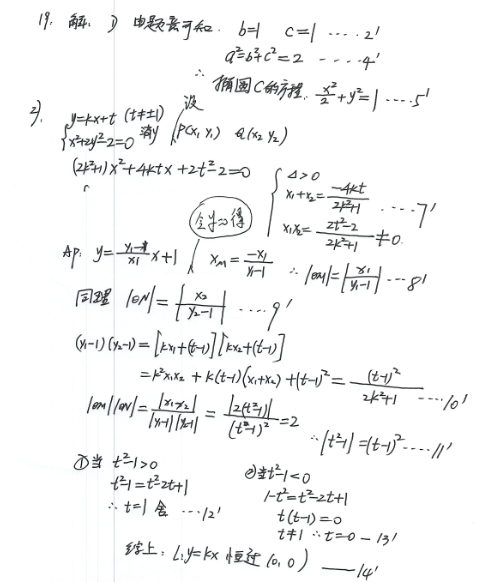 19. 解: 1) 由题意可知. b=1 c=1 ....2'
a²=b²+c²=2 ....4'
∴ 椭圆C的方程. x²/2+y²=1 ....5'
2). { y=kx+t (t≠±1) x²+2y²-2=0 消y 设 P(x₁ y₁) Q(x₂ y₂)
(2k²+1)x²+4ktx+2t²-2=0
{ Δ>0 x₁+x₂=-4kt/2k²+1 x₁x₂=2t²-2/2k²+1≠0. ....7'
令y=0得
AP: y=y₁-1/x₁ x+1 x_M=-x₁/y₁-1 ∴ |OM|=|x₁/y₁-1| ...8'
同理 |ON|=|x₂/y₂-1| ....9'
(y₁-1)(y₂-1)=[kx₁+(t-1)][kx₂+(t-1)]
=k²x₁x₂+k(t-1)(x₁+x₂)+(t-1)²=(t-1)²/2k²+1 ....10'
|OM||ON|=|x₁x₂|/|y₁-1||y₂-1|=|2(t²-1)|/(t-1)²=2
∴|t²-1|=(t-1)²....11'
①当 t²-1>0
t²-1=t²-2t+1
∴ t=1 舍 ...12'
②当t²-1<0
1-t²=t²-2t+1
t(t-1)=0
t≠1 ∴t=0 - 13'
综上: l:y=kx 恒过 (0, 0) —14'